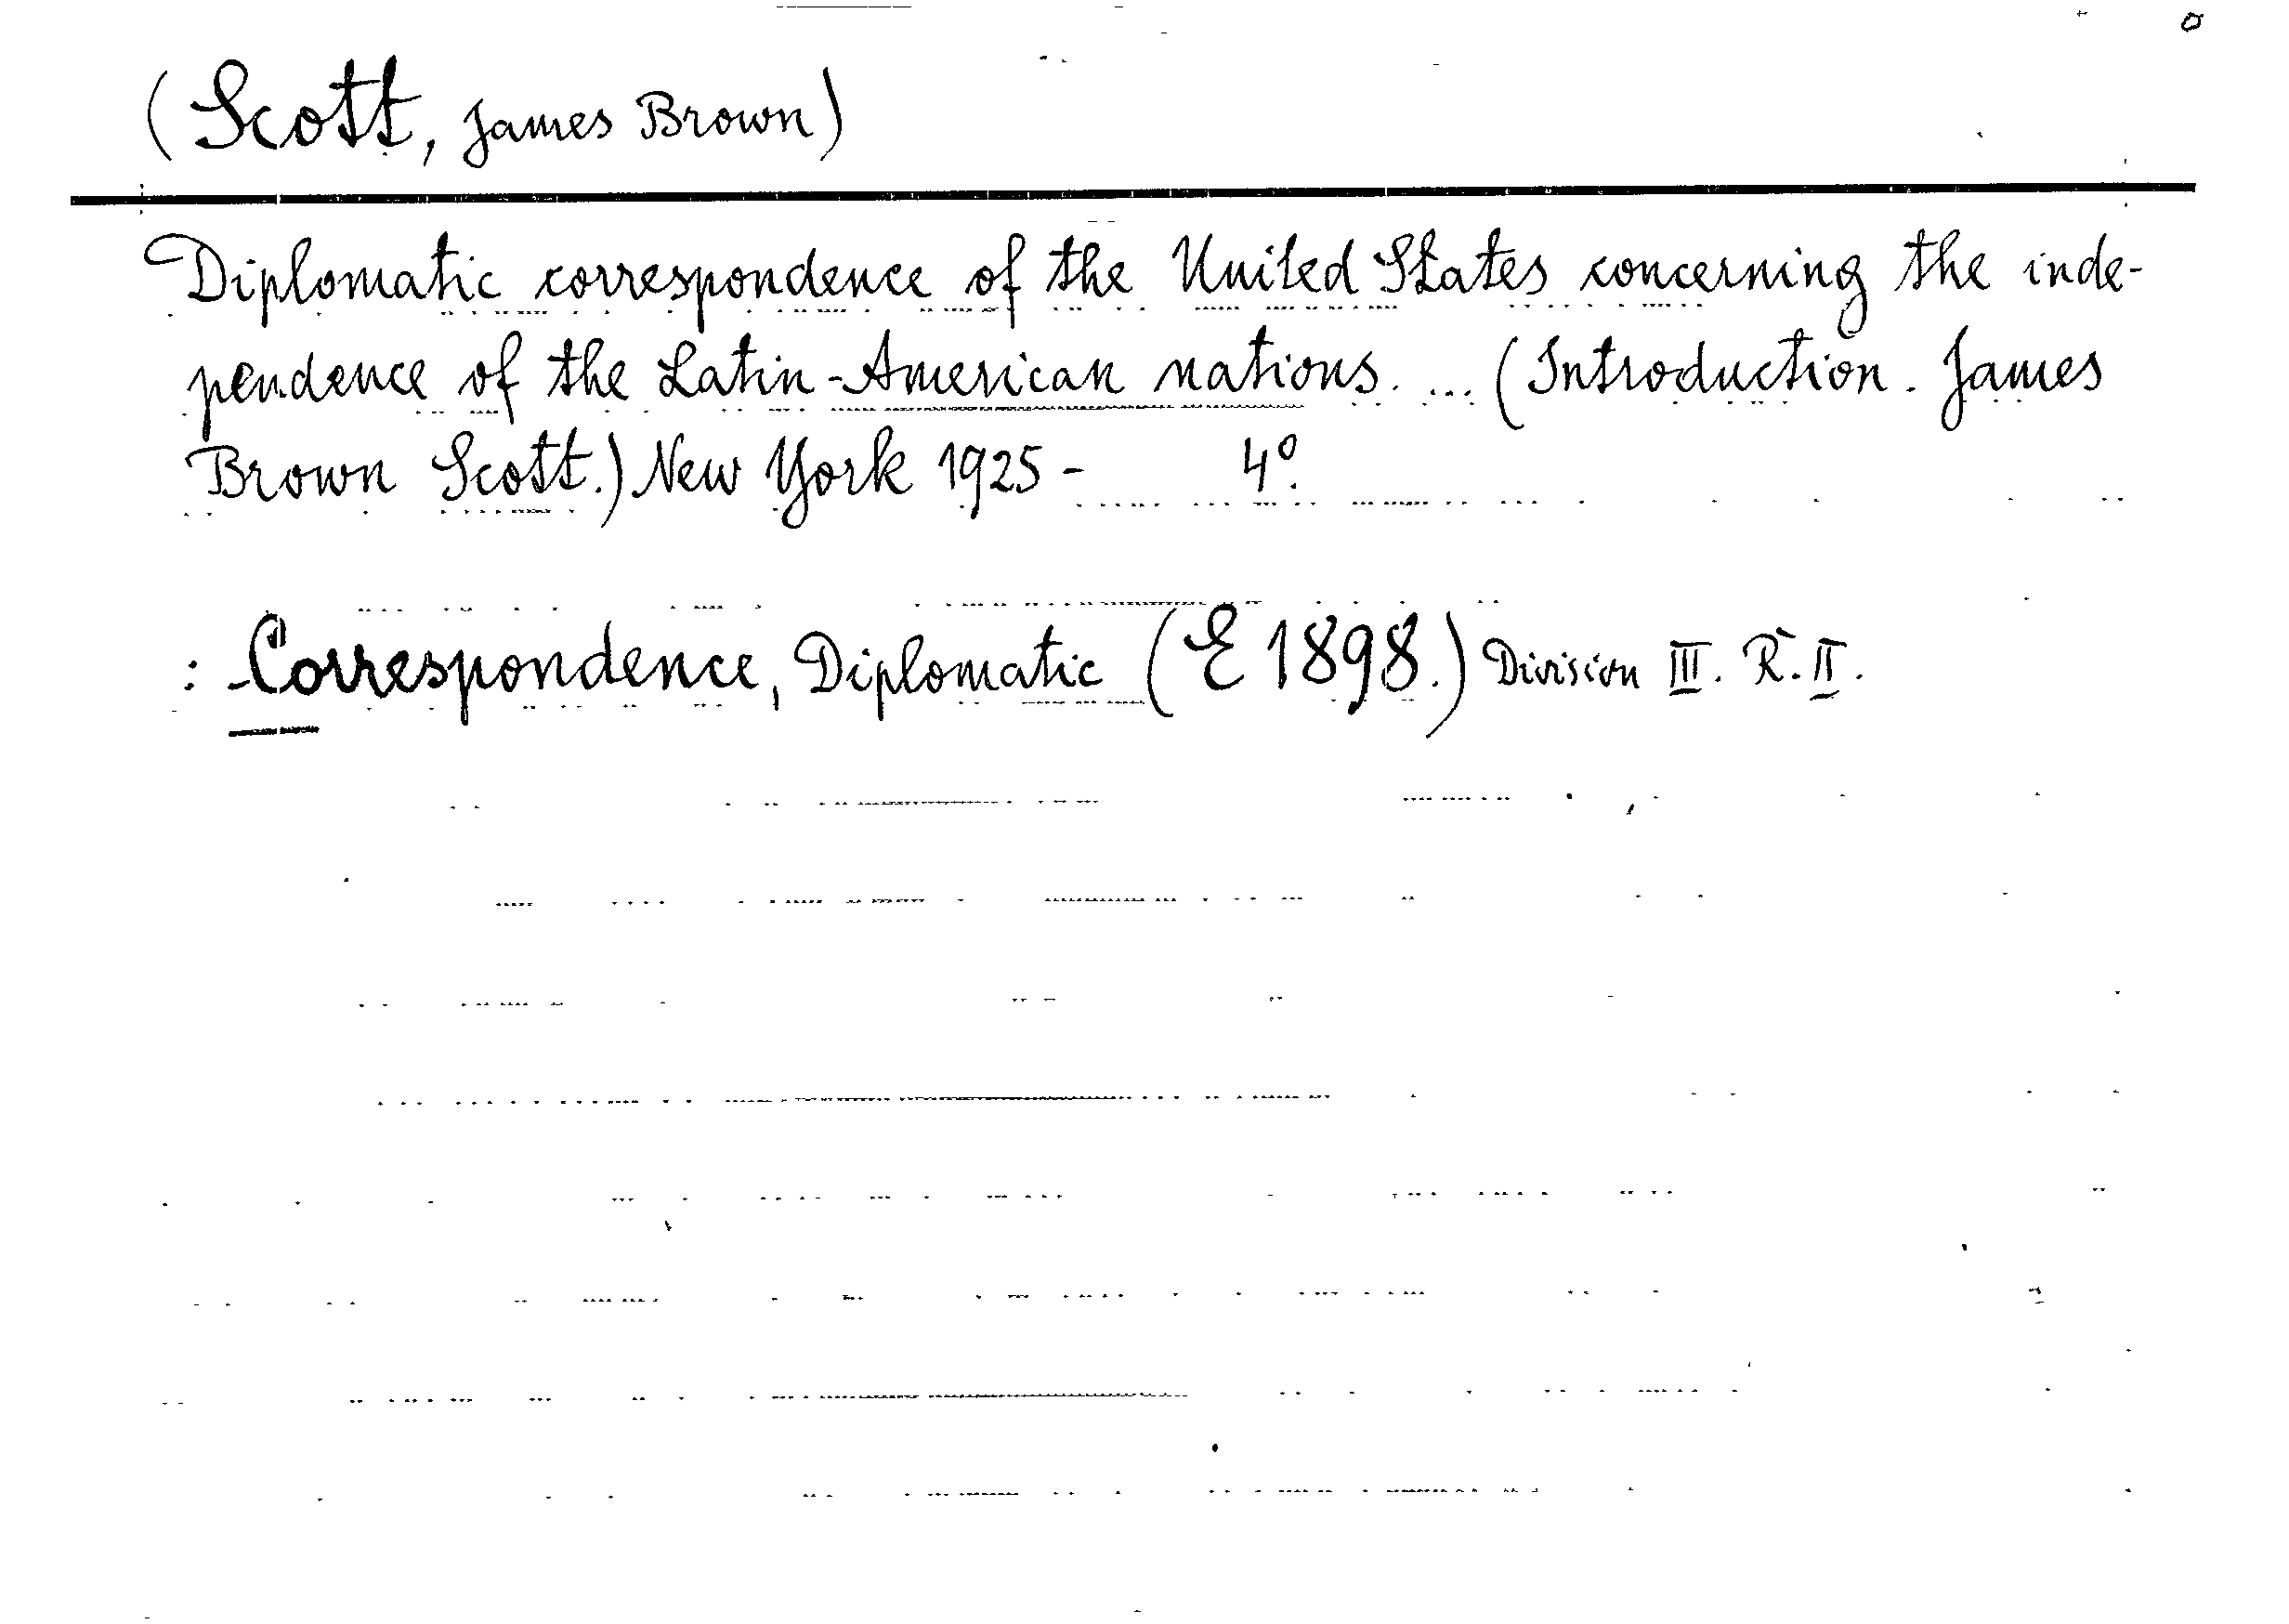 (Scott, James Brown)
Diplomatic correspondence of the United States concerning the inde-
pendence of the Latin-American nations. ... (Introduction. James
Brown Scott.) New York 1925 - 4°.
: Correspondence, Diplomatic (E 1898.) Division III. R. II.